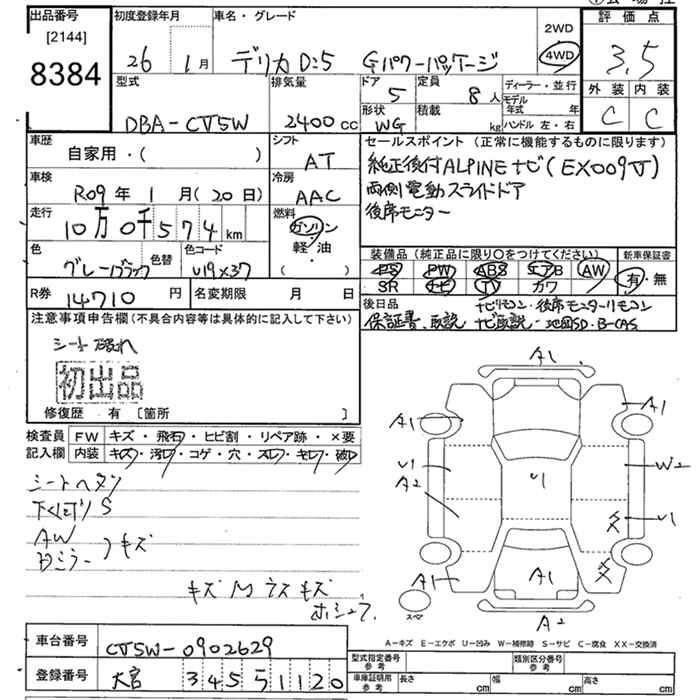 出品番号
[2144]
8384
初度登録年月
26 1月
車名・グレード
デリカD:5 Gパワーパッケージ
2WD
4WD
評価点
3.5
外装 内装
C C
型式
DBA-CV5W
排気量
2400cc
ドア
5
定員
8人
形状
WG
積載
kg
ディーラー・並行
モデル年式 年
ハンドル 左・右
車歴
自家用・( )
シフト
AT
車検
R09年 1月(20日)
冷房
AAC
走行
10万0千574km
燃料
ガソリン
軽・油
( )
色
グレーブラック
色替
色コード
U19×37
R券
14710円
名変期限 月 日
セールスポイント(正常に機能するものに限ります)
純正後付ALPINEナビ(EX009V)
両側電動スライドドア
後席モニター
装備品(純正品に限り○をつけてください)
PS PW ABS エアB AW
SR ナビ TV カワ
新車保証書
有・無
後日品
ナビリモコン・後席モニターリモコン
保証書、取説 ナビ取説・地図SD・B-CAS
注意事項申告欄(不具合内容等は具体的に記入して下さい)
シート破れ
初出品
修復歴 有 [箇所 ]
検査員記入欄
FW キズ・飛石・ヒビ割・リペア跡・×要
内装 キズ・汚レ・コゲ・穴・スレ・キレ・破レ
シートヘタリ
下廻りS
AW
Dミラー)キズ
キズMウスキズ
ホシュウ
A1
A1
A1
U1
A2
U1
W2
U1
A1
A1
A2
スペア
A-キズ E-エクボ U-凹み W-補修跡 S-サビ C-腐食 XX-交換済
車台番号
CV5W-0902629
登録番号
大宮 345 51120
型式指定番号
参考
類別区分番号
参考
車庫証明用
参考
長さ cm
幅 cm
高さ cm